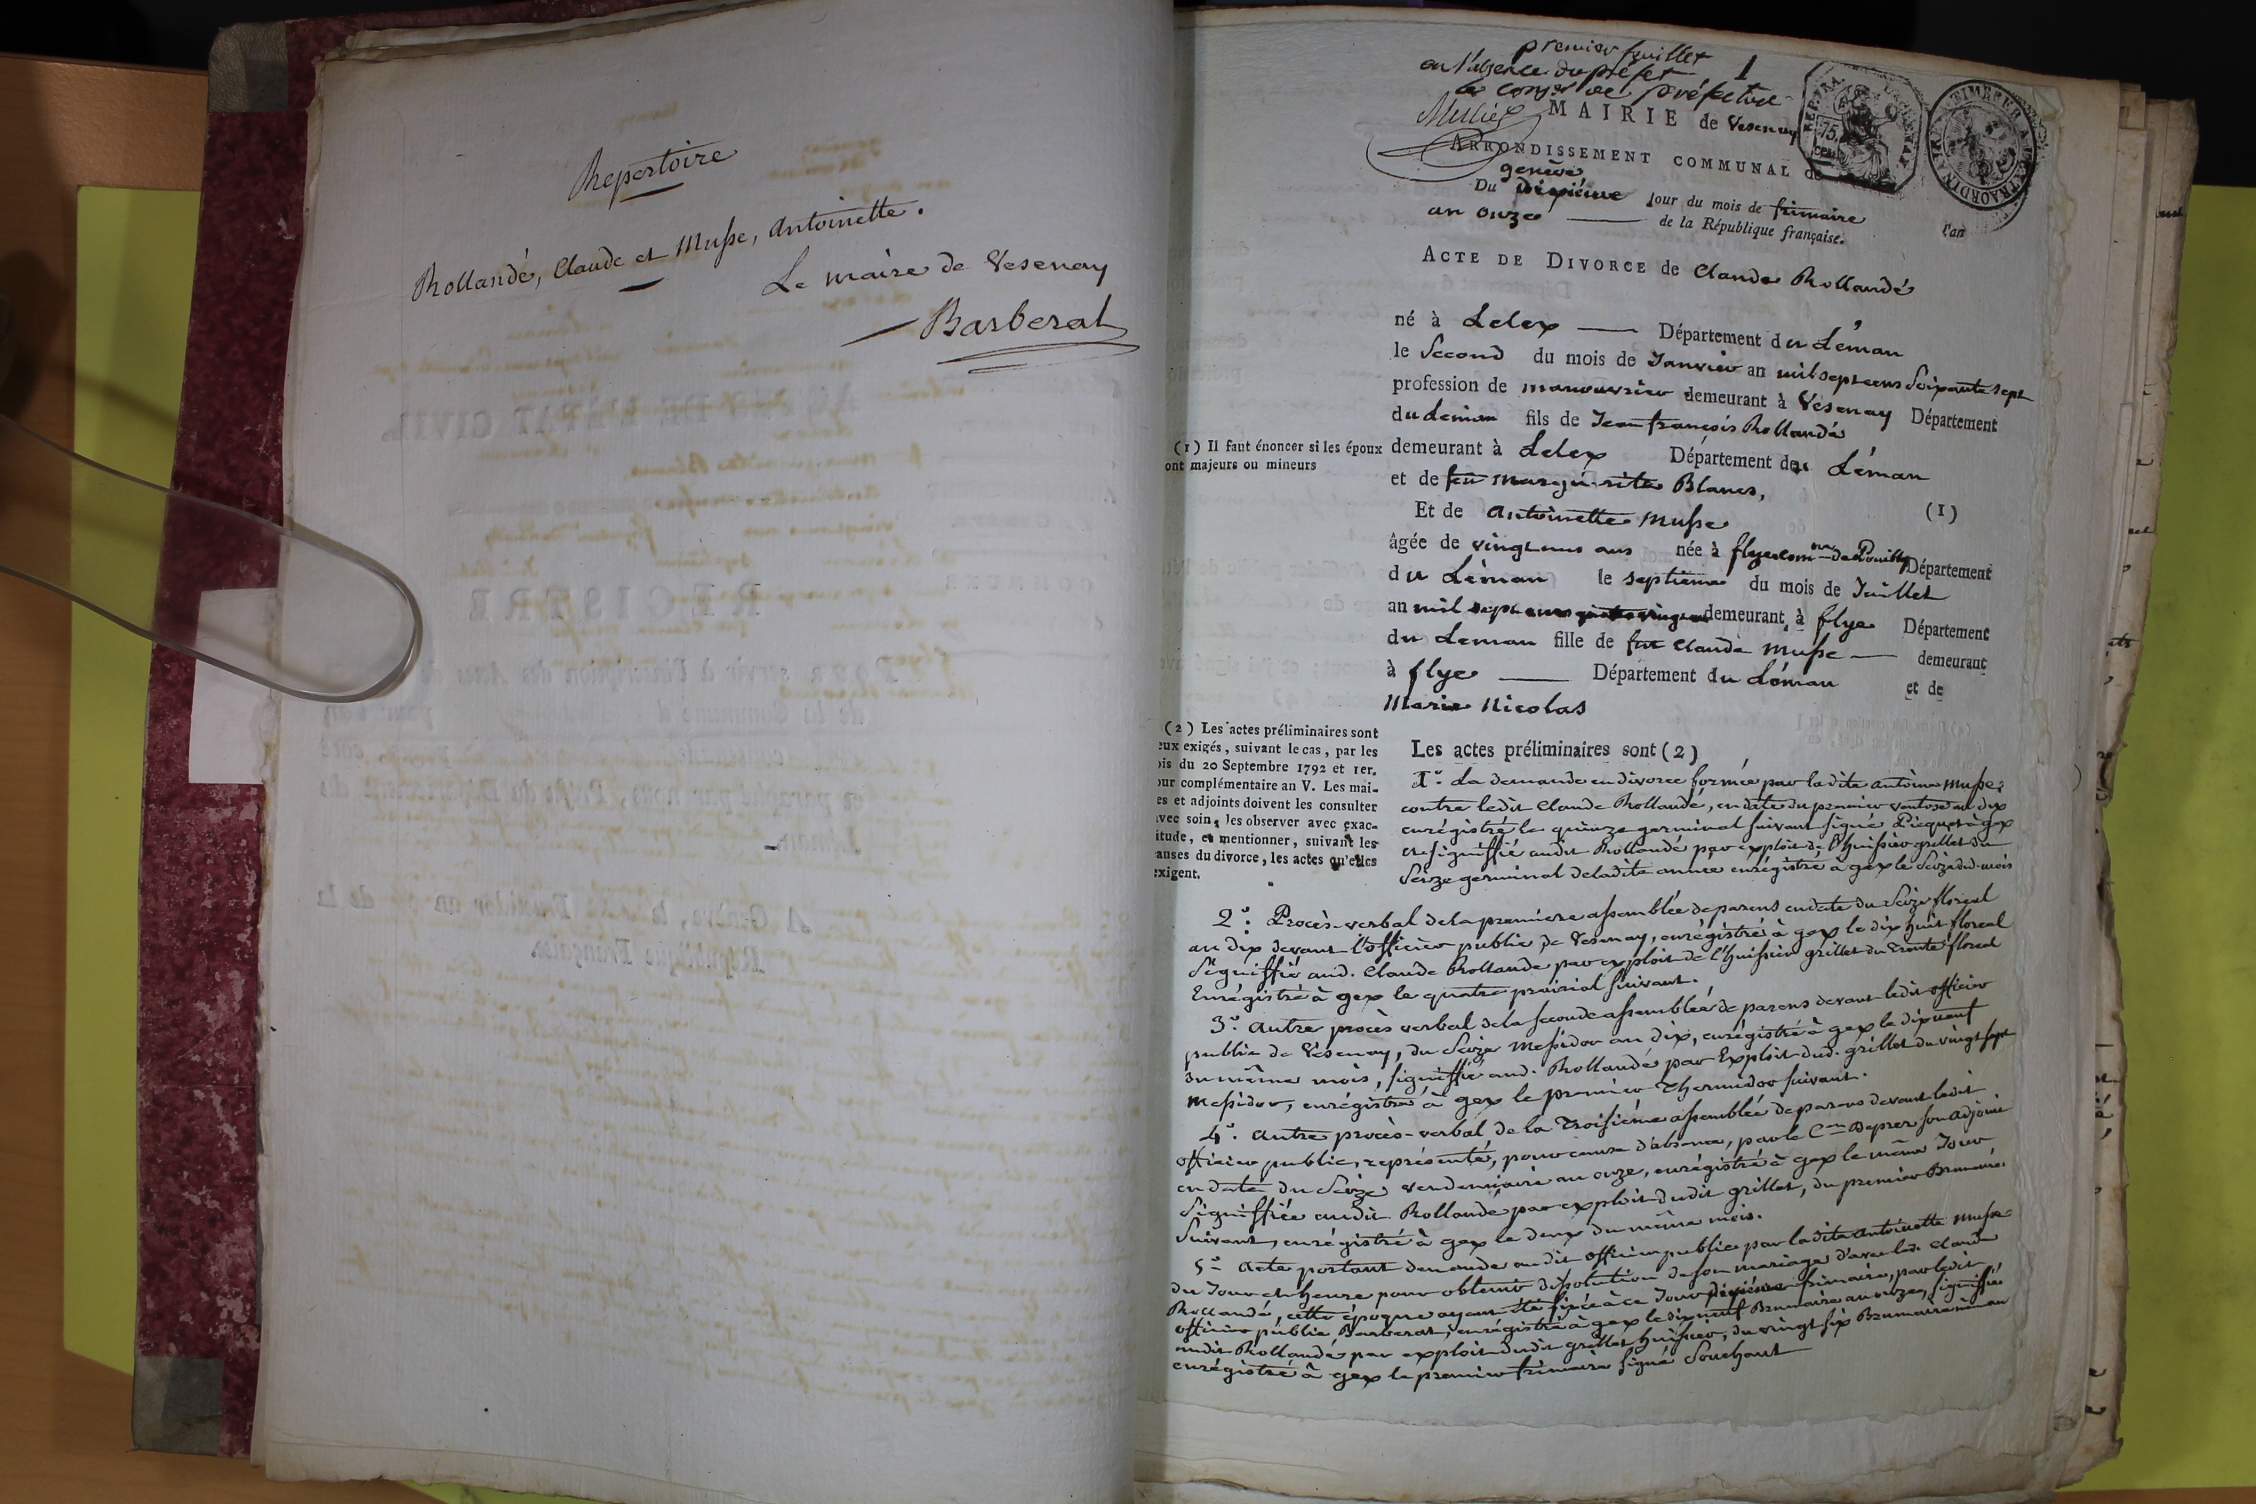 Repertoire
Rollandé, Claude et Musse, Antoinette.
Le maire de Vesenay
Barberat
premier feuillet 1
en l'absence du préfet
le consr de préfecture
MAIRIE de Vesenay
ARRONDISSEMENT COMMUNAL de
genève
Du dixième jour du mois de frimaire l'an
an onze de la République française.
ACTE DE DIVORCE de Claude Rollandé
né à Lelex Département du Léman
le Second du mois de Janvier an mil sept cens Soixante sept
profession de manouvrier demeurant à Vesenay Département
du Leman fils de Jean françois Rollandé
demeurant à Lelex Département du Léman
et de feu Marguerite Blanc,
(1) Il faut énoncer si les époux
ont majeurs ou mineurs
Et de Antoinette Musse (1)
âgée de vingt uns ans née à flye comne de Pouilly Département
du Léman le septième du mois de Juillet
an mil sept cens quatre vingt un demeurant à flye Département
du Leman fille de fut Claude Musse demeurant
à flye Département du Léman et de
Marie Nicolas
(2) Les actes préliminaires sont
eux exigés, suivant le cas, par les
ois du 20 Septembre 1792 et 1er.
our complémentaire an V. Les mai-
es et adjoints doivent les consulter
avec soin, les observer avec exac-
itude, et mentionner, suivant les
auses du divorce, les actes qu'elles
exigent.
Les actes préliminaires sont (2)
1°. La demande en divorce formée par la dite antoine Musse,
contre ledit Claude Rollandé, en date du premier ventose an dix
enrégistré le quinze germinal suivant signé Picquet à gex
et signiffié audit Rollandé par exploit de l'huissier grillet du
Seize germinal de ladite année enrégistré à gex le Seize dud. mois
2°. Procès-verbal de la premiere assemblée de parens en date du Seize floreal
an dix devant l'officier public de Vesenay, enrégistré à gex le dix huit floreal
Signiffié aud. Claude Rollandé par exploit de l'huissier grillet du trente floreal
Enrégistré à gex le quatre prairial suivant.
3°. Autre procès verbal de la seconde assemblée de parens devant ledit officier
public de Vesenay, du Seize Messidor an dix, enrégistré à gex le dix neuf
du même mois, signiffié aud. Rollandé par Exploit dud. grillet du vingt sept
Messidor, enrégistré à gex le premier Thermidor suivant.
4°. Autre procès-verbal de la Troisiéme assemblée de parens devant ledit
officier public, représenté, pour cause d'absence, par le Cen Deprez son adjoint
en date du Seize vendemiaire an onze, enrégistré à gex le même Jour
Signiffiée audit Rollandé par exploit dudit grillet, du premier Brumaire
Suivant, enrégistré à gex le deux du même mois.
5°. Acte portant demande audit officier public par ladite Antoinette Musse
du Jour et heure pour obtenir dissolution de son mariage d'avec led. Claude
Rollandé, cette époque ayant été fixée à ce Jour dixième frimaire, par ledit
officier public Barberat, enrégistré à gex le dix neuf Brumaire an onze, signiffié
audit Rollandé par exploit dudit grillet huissier, du vingt six Brumaire même an
enrégistré à gex le premier frimaire signé Souchaut